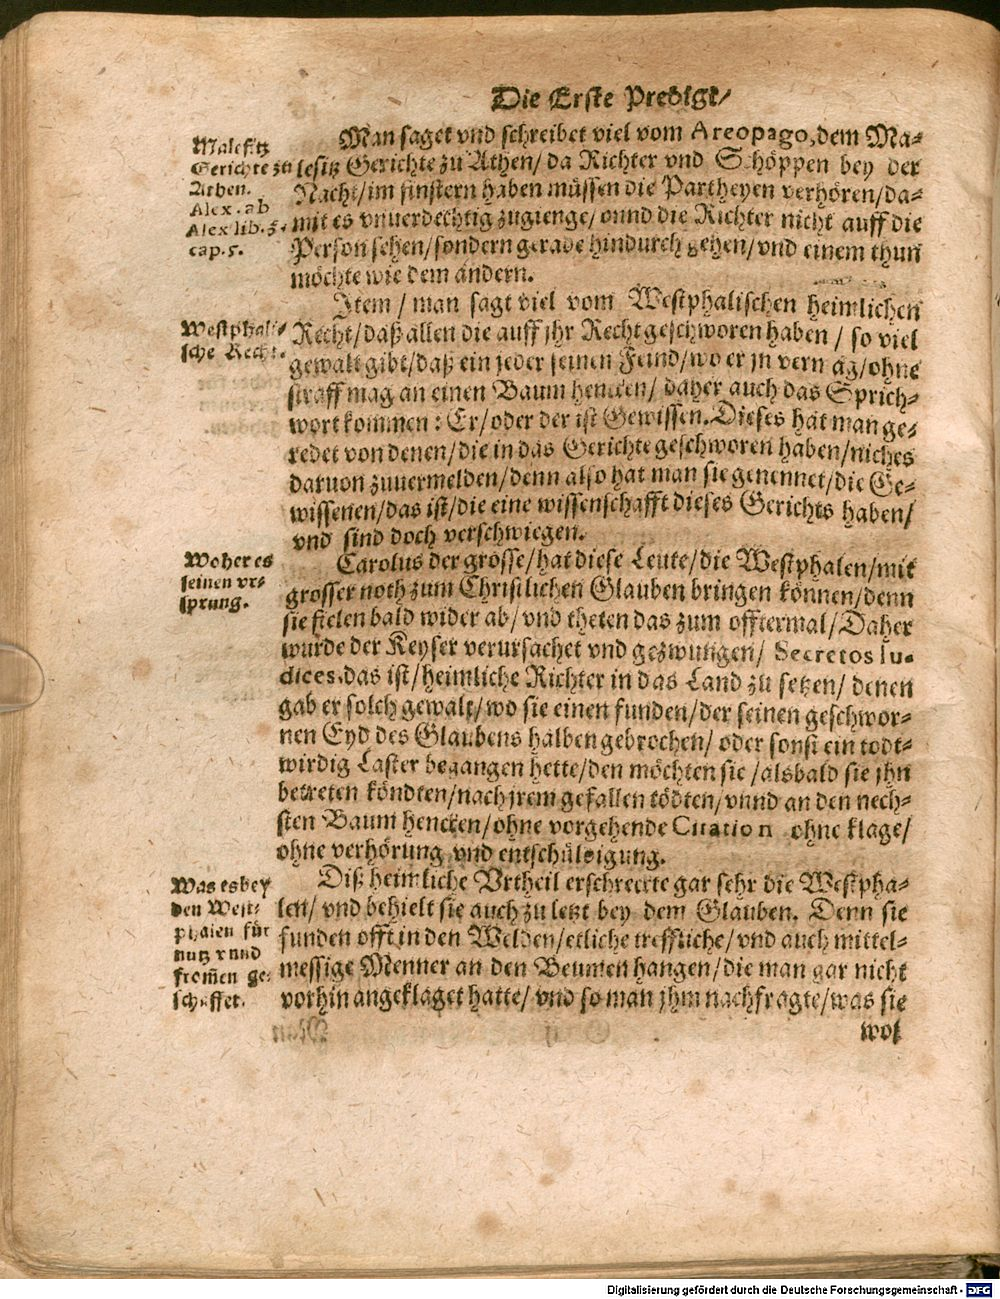 Die Erste Predigt/
Malefitz
Gerichte zu
Athen.
Alex. ab
Alex lib. 5.
cap. 5.
Man saget vnd schreibet viel vom Areopago, dem Ma-
lesitz Gerichte zu Athen/ da Richter vnd Schöppen bey der
Nacht/ im finstern haben müssen die Partheyen verhören/ da-
mit es vnuerdechtig zugienge/ vnnd die Richter nicht auff die
Person sehen/ sondern gerade hindurch gehen/ vnd einem thun
möchte wie dem andern.
Westphali-
sche Recht.
Item/ man sagt viel vom Westphalischen heimlichen
Recht/ daß allen die auff jhr Recht geschworen haben/ so viel
gewalt gibt/ daß ein jeder seinen Feind/ wo er jn vermag/ ohne
straff mag an einen Baum hencken/ daher auch das Sprich-
wort kommen: Er/ oder der ist Gewissen. Dieses hat man ge-
redet von denen/ die in das Gerichte geschworen haben/ nichts
daruon zuuermelden/ denn also hat man sie genennet/ die Ge-
wissenen/ das ist/ die eine wissenschafft dieses Gerichts haben/
vnd sind doch verschwiegen.
Woher es
seinen vr-
sprung.
Carolus der grosse/ hat diese Leute/ die Westphalen/ mit
grosser noth zum Christlichen Glauben bringen können/ denn
sie fielen bald wider ab/ vnd theten das zum offtermal/ Daher
wurde der Keyser verursachet vnd gezwungen/ Secretos Iu-
dices, das ist/ heimliche Richter in das Land zu setzen/ denen
gab er solch gewalt/ wo sie einen funden/ der seinen geschwor-
nen Eyd des Glaubens halben gebrochen/ oder sonst ein todt-
wirdig Laster begangen hette/ den möchten sie/ alsbald sie jhn
betreten köndten/ nach jrem gefallen tödten/ vnnd an den nech-
sten Baum hencken/ ohne vorgehende Citation ohne klage/
ohne verhörung vnd entschüldigung.
Was es bey
den West-
phalen für
nutz vnnd
frommen ge-
schaffet.
Diß heimliche Vrtheil erschreckte gar sehr die Westpha-
len/ vnd behielt sie auch zu letzt bey dem Glauben. Denn sie
funden offt in den Welden/ etliche treffliche/ vnd auch mittel-
messige Menner an den Beumen hangen/ die man gar nicht
vorhin angeklaget hatte/ vnd so man jhm nachfragte/ was sie
wol
Digitalisierung gefördert durch die Deutsche Forschungsgemeinschaft - DFG